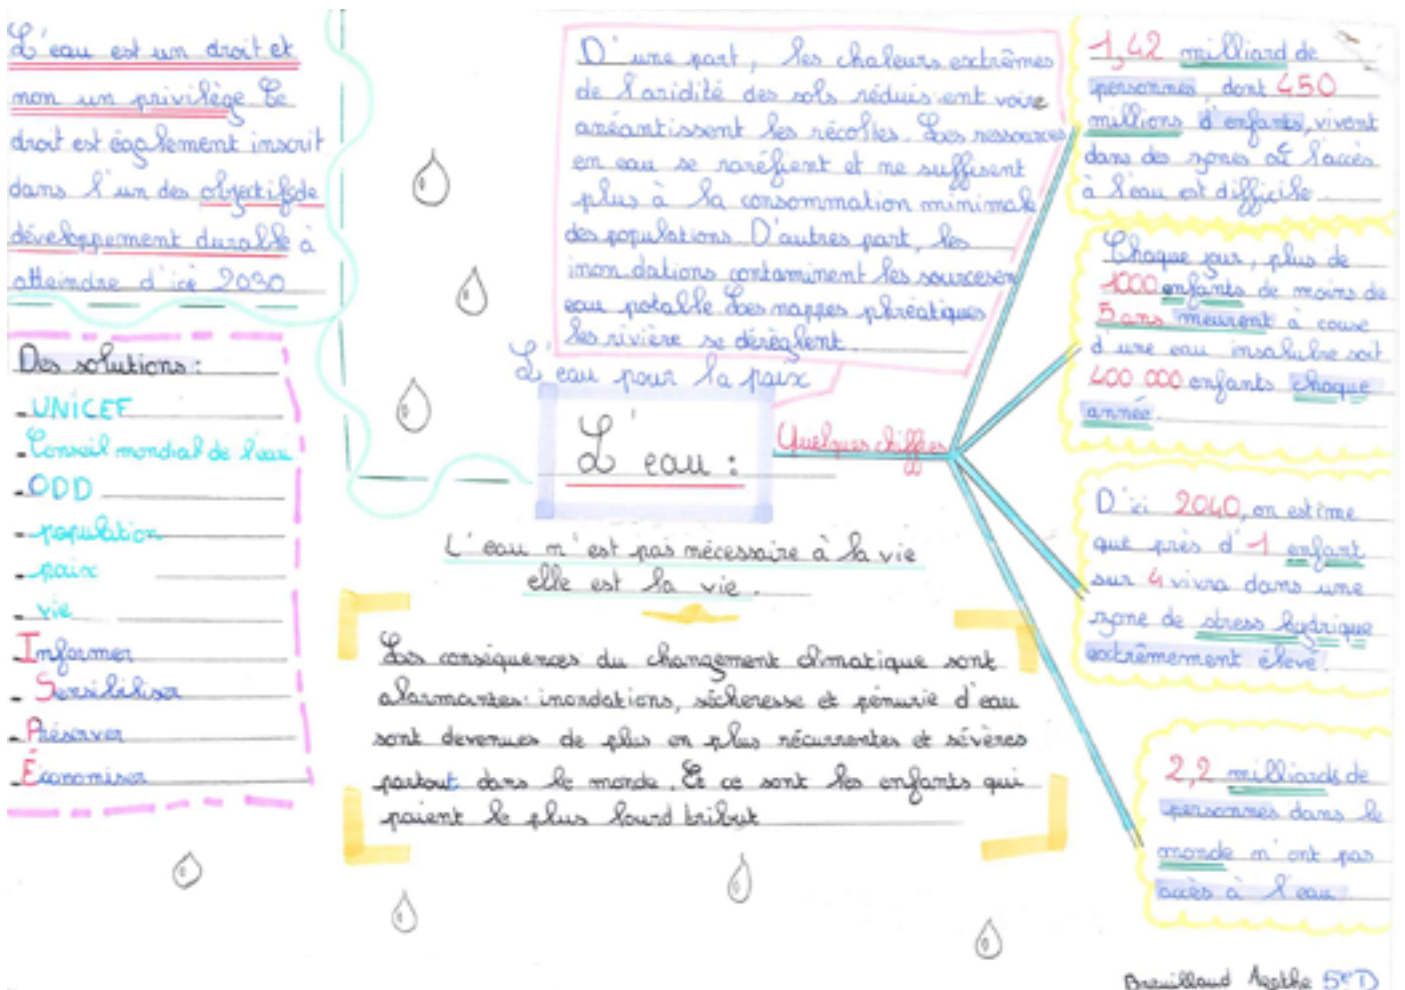 L'eau est un droit et
non un privilège Ce
droit est également inscrit
dans l'un des objectifs de
développement durable à
atteindre d'ici 2030
Des solutions :
- UNICEF
- Conseil mondial de l'eau
- ODD
- population
- paix
- vie
- Informer
- Sensibiliser
- Préserver
- Économiser
D'une part, les chaleurs extrêmes
de l'aridité des sols réduisent voire
anéantissent les récoltes. Les ressources
en eau se raréfient et ne suffisent
plus à la consommation minimale
des populations D'autres part, les
inondations contaminent les sources en
eau potable Les nappes phréatiques
les rivière se dérèglent.
L'eau pour la paix
L'eau :
Quelques chiffres
L'eau n'est pas nécessaire à la vie
elle est la vie.
Les conséquences du changement climatique sont
alarmantes: inondations, sécheresse et pénurie d'eau
sont devenues de plus en plus récurrentes et sévères
partout dans le monde. Et ce sont les enfants qui
paient le plus lourd tribut
1,42 milliard de
personnes dont 450
millions d'enfants, vivent
dans des zones où l'accès
à l'eau est difficile
Chaque jour, plus de
1000 enfants de moins de
5 ans meurent à cause
d'une eau insalubre soit
400 000 enfants chaque
année.
D'ici 2040, on estime
que près d'1 enfant
sur 4 vivra dans une
zone de stress hydrique
extrêmement élevé.
2,2 milliards de
personnes dans le
monde n'ont pas
accès à l'eau.
Breuillaud Agathe 5e D